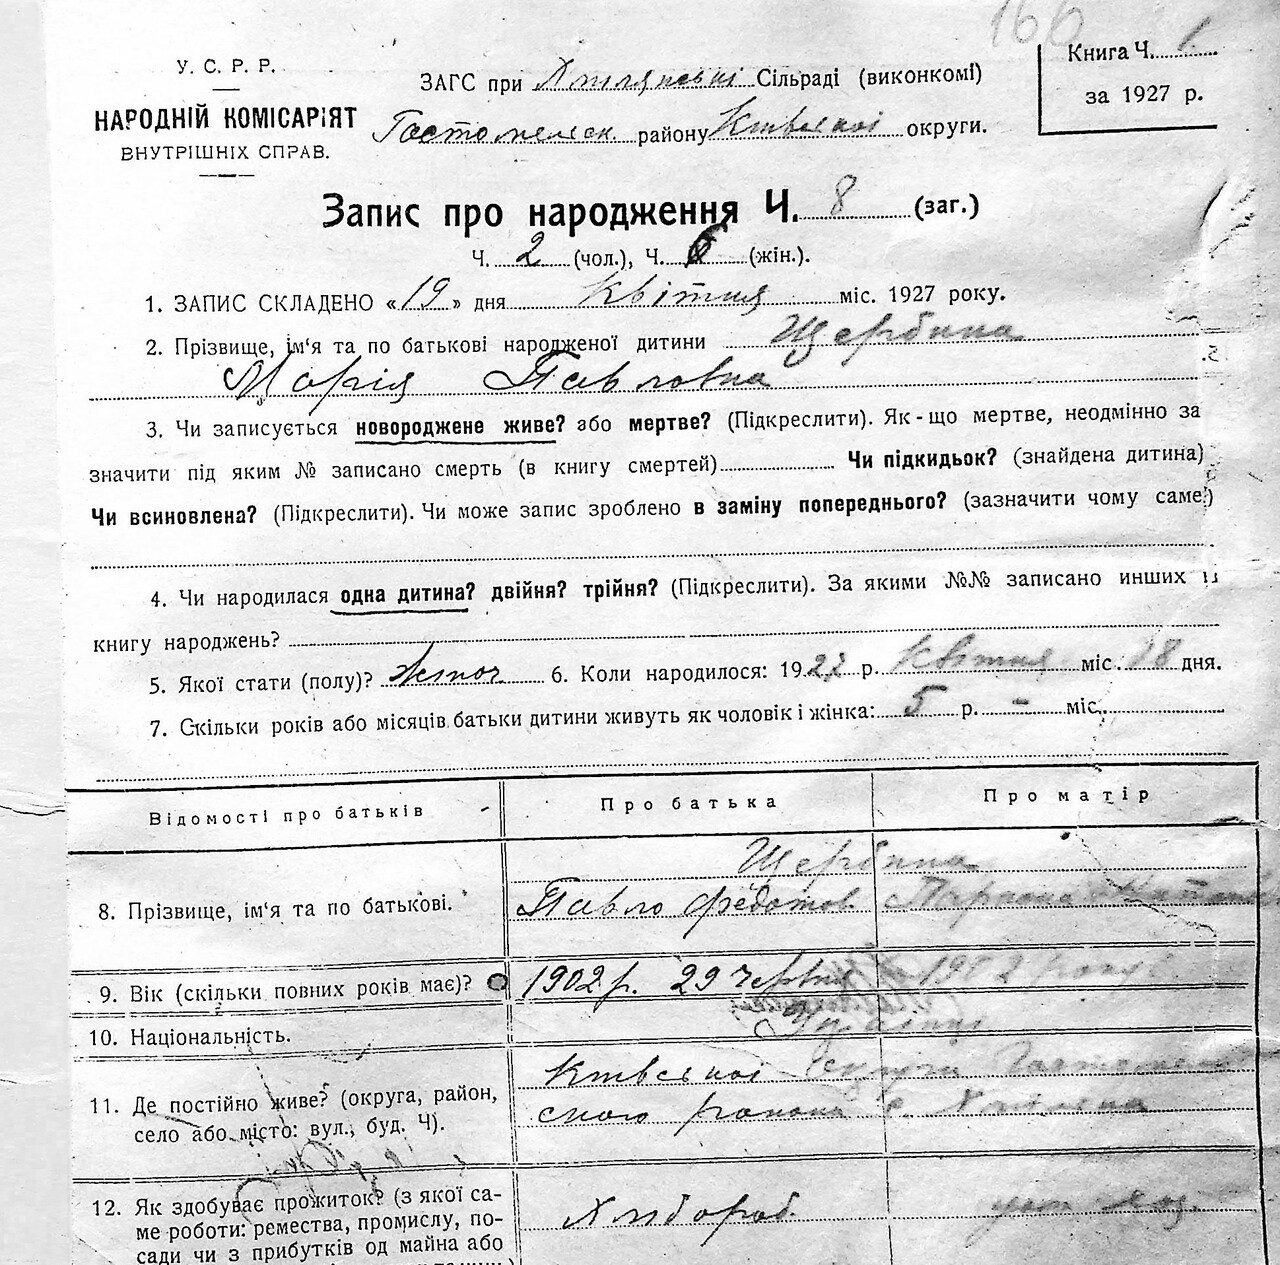 166
У. С. Р. Р.
НАРОДНІЙ КОМІСАРІЯТ
ВНУТРІШНІХ СПРАВ.
ЗАГС при Сільраді (виконкомі)
Гостомельск. району Київської округи.
Книга Ч. 1
за 1927 р.
Запис про народження Ч. 8 (заг.)
Ч. 2 (чол.), Ч. 6 (жін.).
1. ЗАПИС СКЛАДЕНО «19» дня Квітня міс. 1927 року.
2. Прізвище, ім'я та по батькові народженої дитини Щербина
Марія Павловна
3. Чи записується новороджене живе? або мертве? (Підкреслити). Як-що мертве, неодмінно за
значити під яким № записано смерть (в книгу смертей) Чи підкидьок? (знайдена дитина)
Чи всиновлена? (Підкреслити). Чи може запис зроблено в заміну попереднього? (зазначити чому саме?)
4. Чи народилася одна дитина? двійня? трійня? (Підкреслити). За якими №№ записано инших в
книгу народжень?
5. Якої стати (полу)? жіноч 6. Коли народилося: 1927 р. Квітня міс. 18 дня.
7. Скільки років або місяців батьки дитини живуть як чоловік і жінка: 5 р. - міс.
Відомості про батьків Про батька Про матір
Щербина
8. Прізвище, ім'я та по батькові. Павло Федотов
9. Вік (скільки повних років має)? 1902 р. 29 червня 1902
10. Національність. Українці
11. Де постійно живе? (округа, район, Київської округи Гостомель
село або місто: вул., буд. Ч). ского района с.
12. Як здобуває прожиток? (з якої са- Хлібороб
ме роботи: ремества, промислу, по-
сади чи з прибутків од майна або